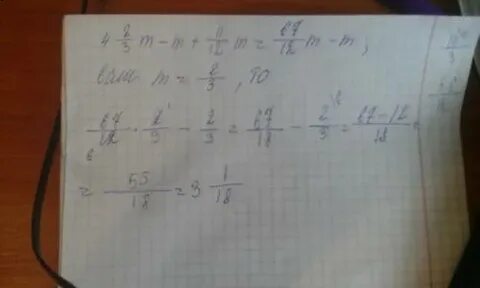 4 2/3 m - m + 11/12 m = 67/12 m - m ;
если m = 2/3 , то
67/12 · 2/3 - 2/3 = 67/18 - 2/3 = 67-12/18 =
= 55/18 = 3 1/18